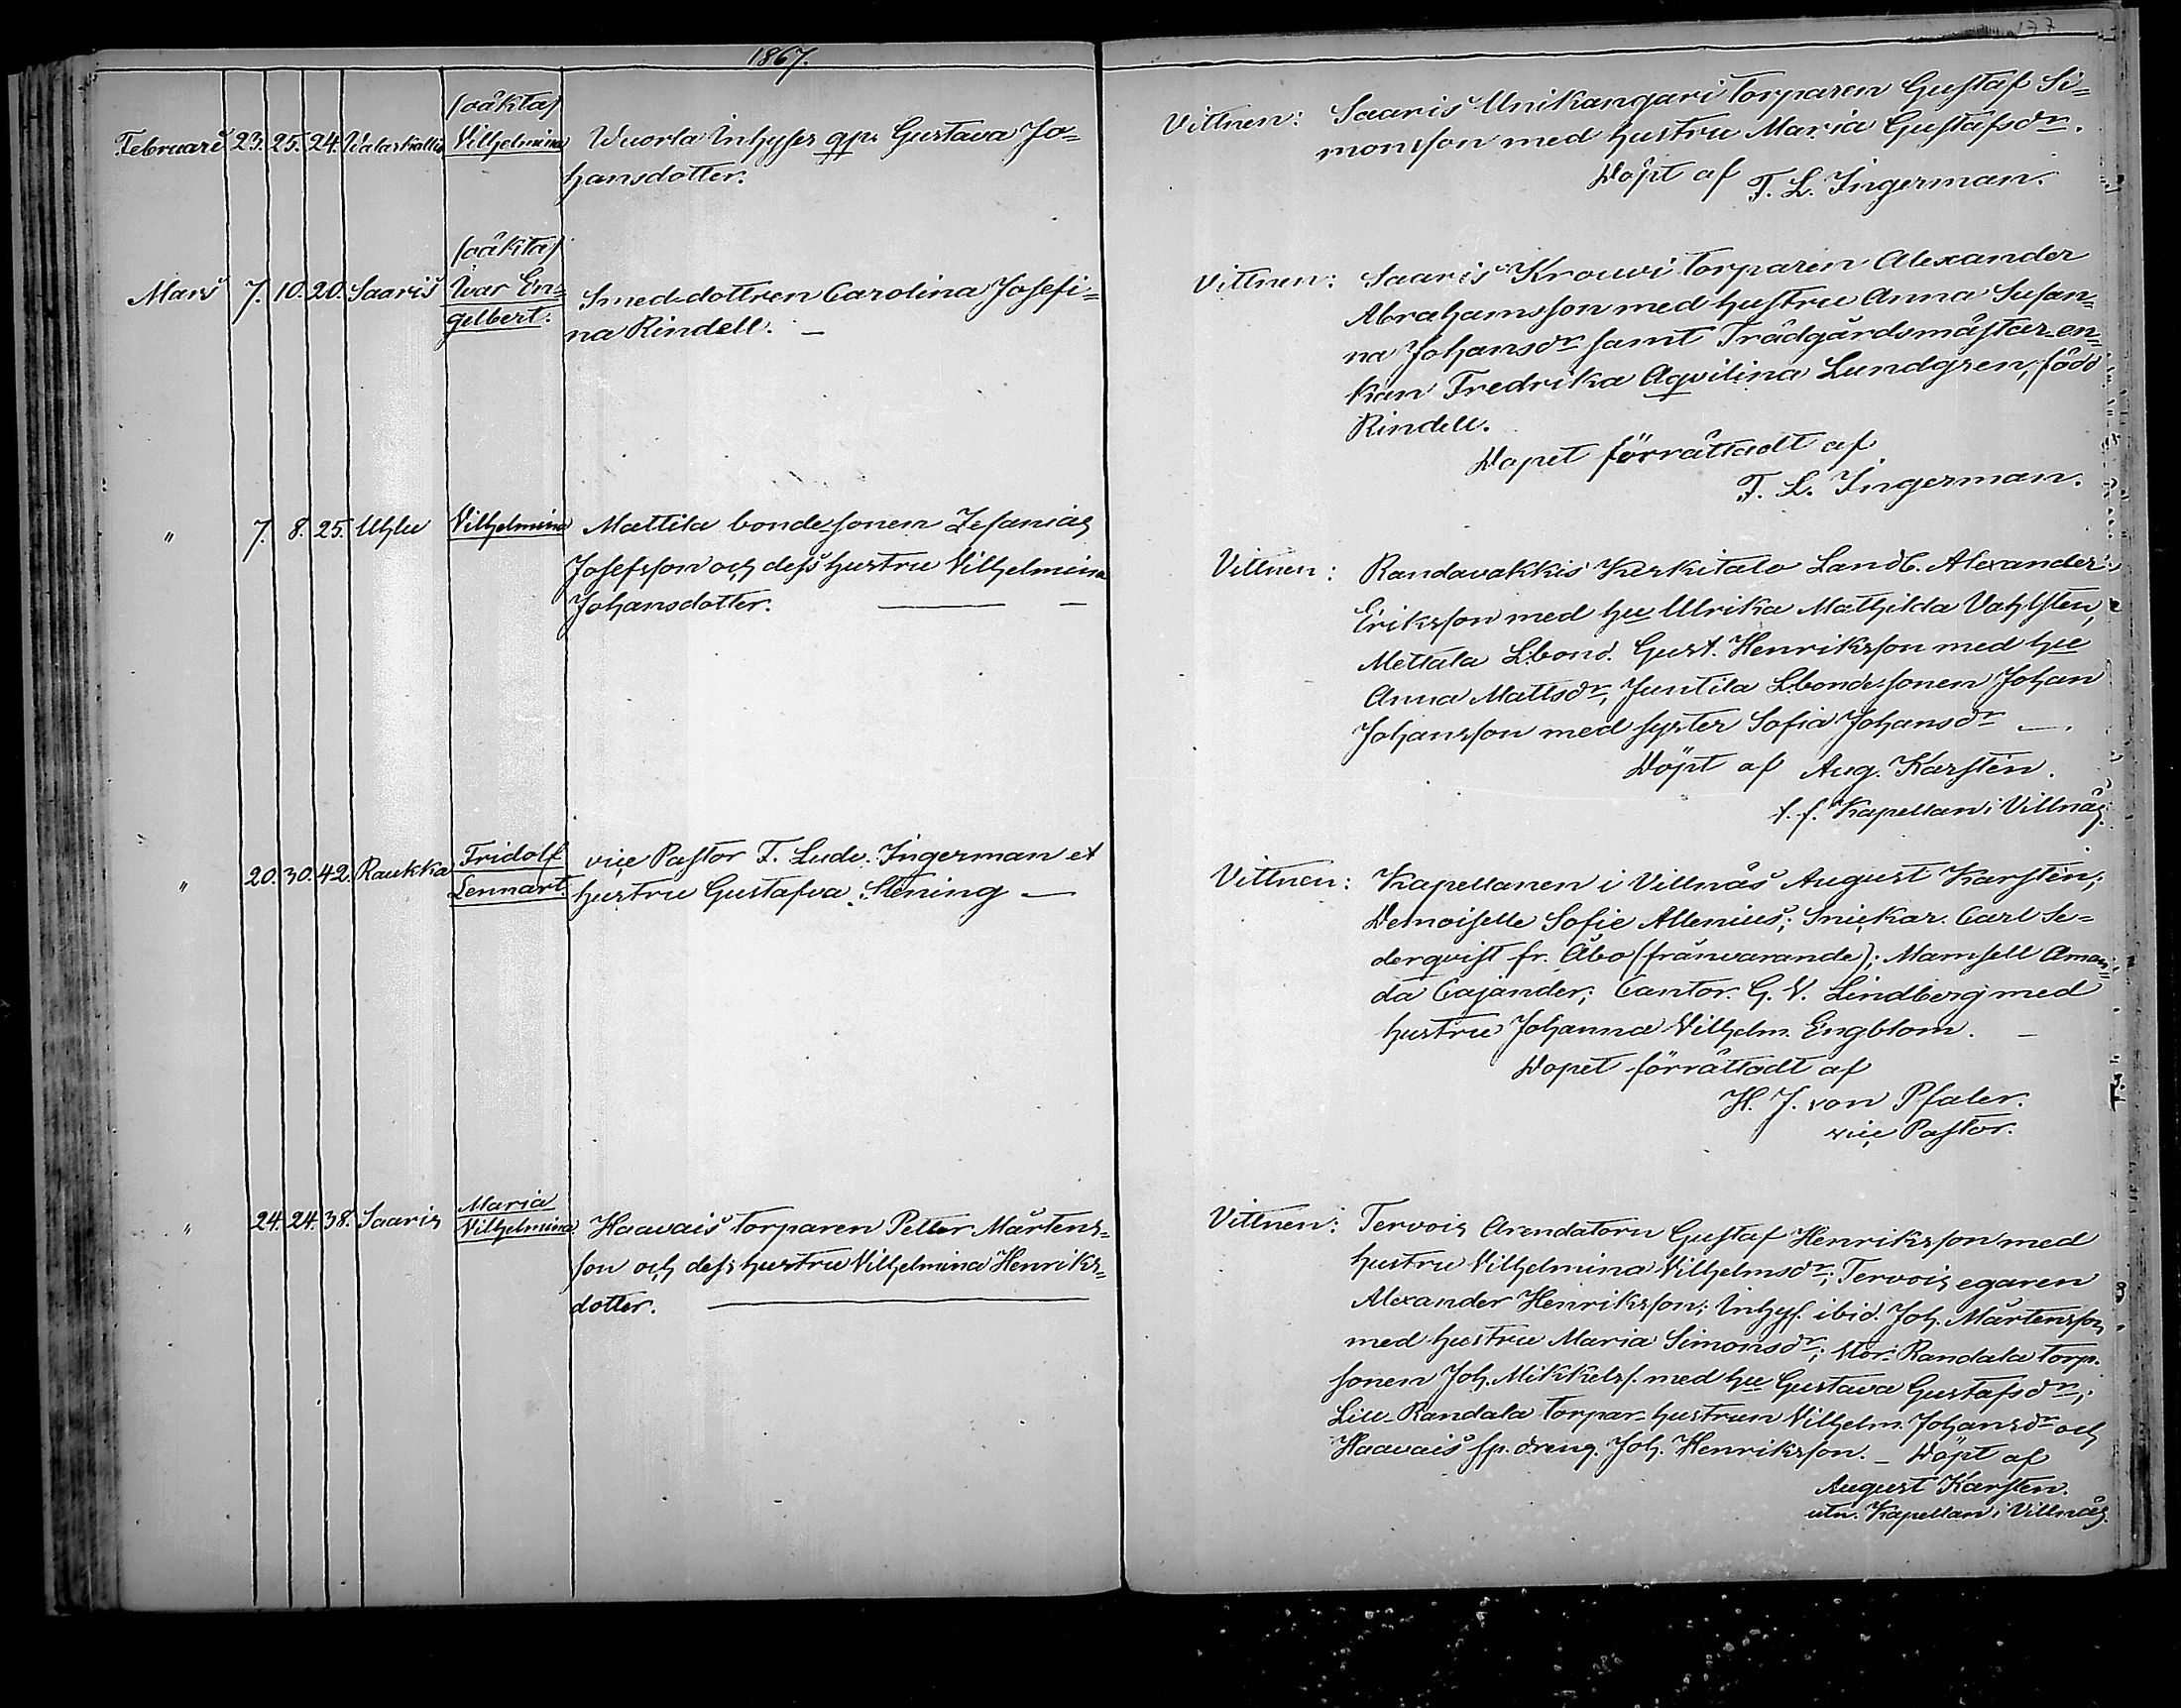 1867.
177
(oäkta)
Februari 23. 25. 24. Valaskallio Vilhelmina Wuorla Inhyses qps Gustava Jo=
hansdotter.
Vittnen: Saaris Unikangari Torparen Gustaf Si=
monsson med hustru Maria Gustafsdr.
Döpt af T. L. Ingerman.
(oäkta)
Mars 7. 10. 20. Saaris Ivar En=
gelbert.
Smedsdottren Carolina Josefi=
na Rindell. —
Vittnen: Saaris Krouvi Torparen Alexander
Abrahamsson med hustru Anna Susan=
na Johansdr samt Trädgårdsmästar-en=
kan Fredrika Aqvilina Lundgren, född
Rindell.
Dopet förrättadt af
T. L. Ingerman.
" 7. 8. 25. Uhlu Vilhelmina Mattila bonde-sonen Zefanias
Josefsson och dess hustru Vilhelmina
Johansdotter. — —
Vittnen: Randavakkis Keskitalo Landb. Alexander
Eriksson med hu Ulrika Mathilda Vahlsten,
Mettala Lbond. Gust. Henriksson med hu
Anna Mattsdr, Juntila Lbonde-sonen Johan
Johansson med syster Sofia Johansdr —.
Döpt af Aug. Karstén.
t. f. Kapellan i Villnäs.
" 20. 30. 42. Raukka Fridolf
Lennart.
vice Pastor T. Ludv. Ingerman et
hustru Gustafva Stening —
Vittnen: Kapellanen i Villnäs August Karstén;
Demoiselle Sofie Allenius; Snickar. Carl Se=
derqvist fr. Åbo (frånvarande); Mamsell Aman=
da Cajander; Cantor. G. V. Lindberg med
hustru Johanna Vilhelm. Engblom. —
Dopet förrättadt af
H. J. von Pfaler.
vice Pastor.
" 24. 24. 38. Saaris Maria
Vilhelmina.
Haavais Torparen Petter Mårtens=
son och dess hustru Vilhelmina Henriks=
dotter. —
Vittnen: Tervois Arendatorn Gustaf Henriksson med
hustru Vilhelmina Vilhelmsdr; Tervois egaren
Alexander Henriksson; Inhys. ibid. Joh. Mårtensson
med hustru Maria Simonsdr; Stor-Randala Torp.
sonen Joh. Mikkelss. med hu Gustava Gustafsdr;
Lill-Randala Torpar-hustrun Vilhelm. Johansdr och
Haavais sp. dreng. Joh. Henriksson. — Döpt af
August Karsten.
utn. Kapellan i Villnäs.